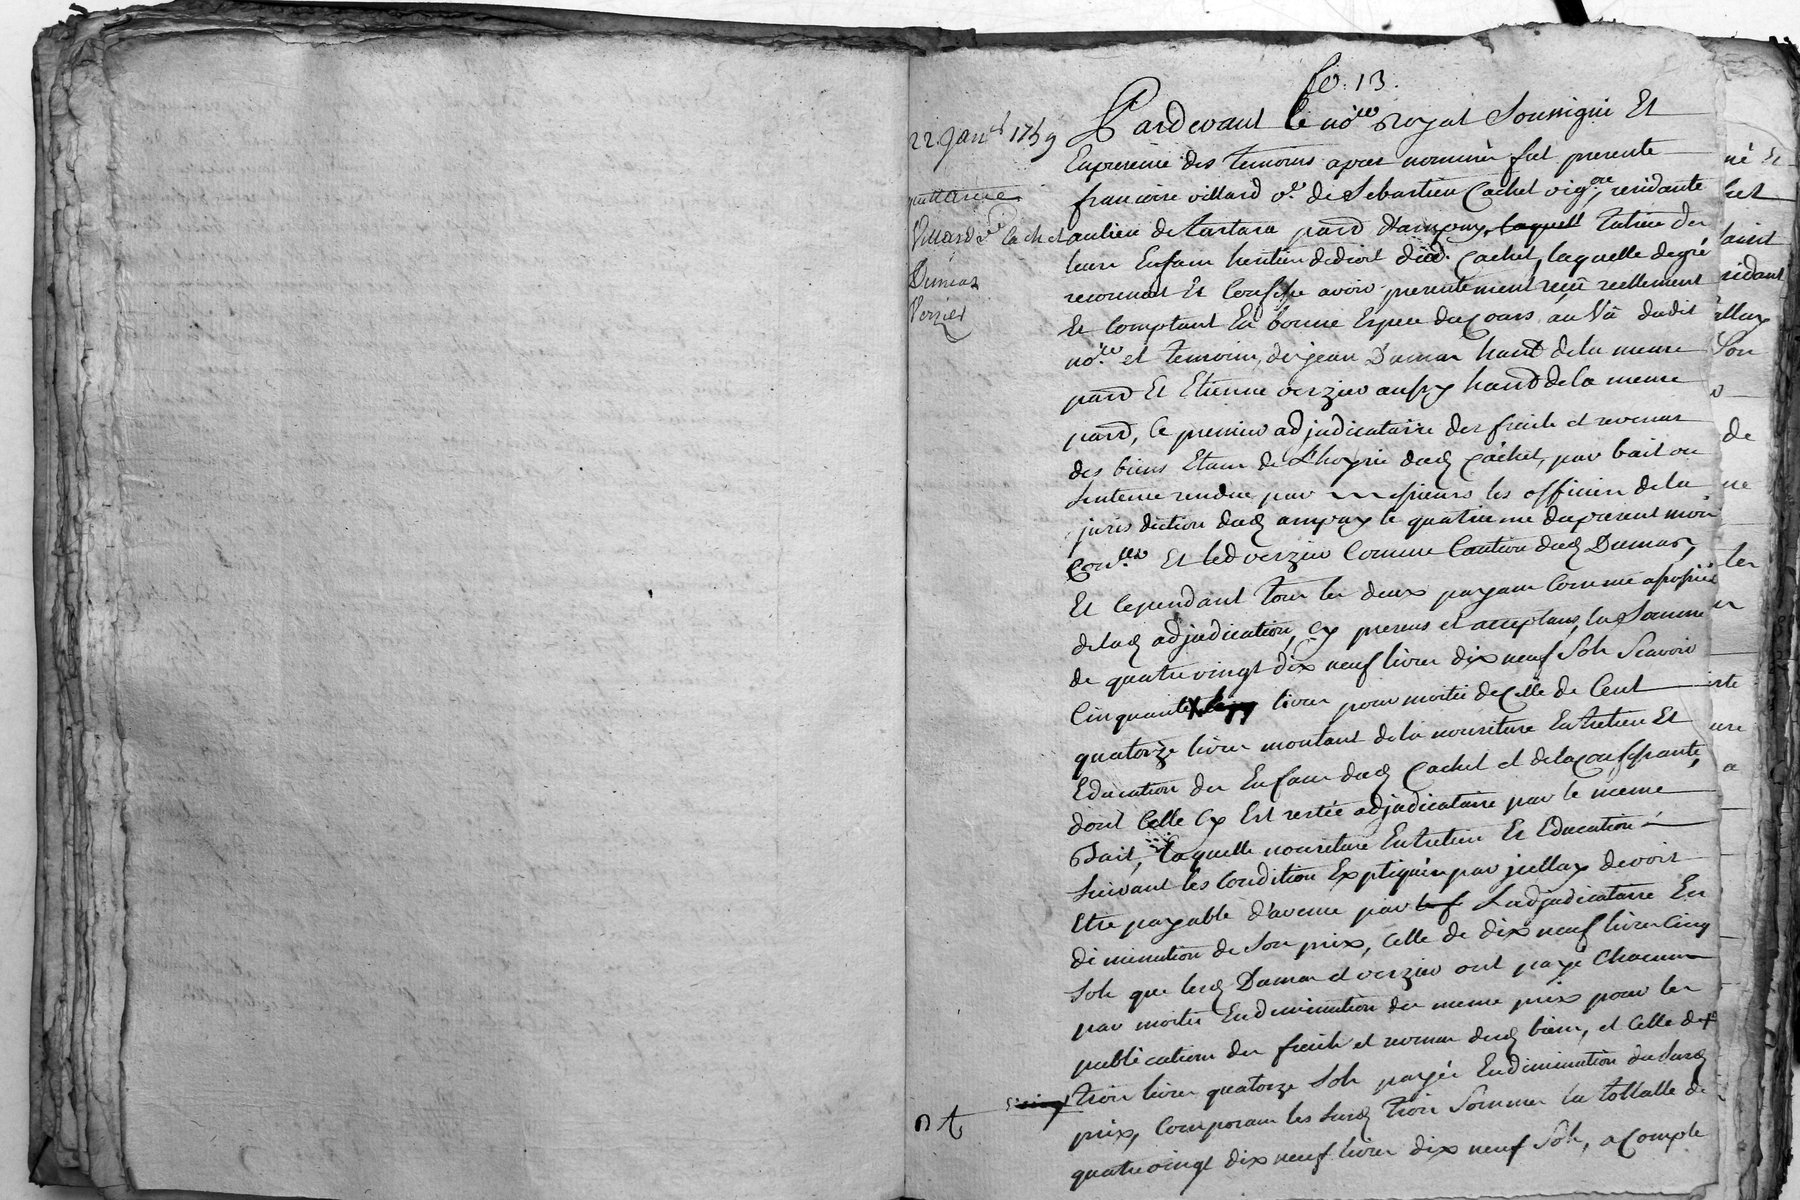 fo. 13.
22. Janer 1759
quittance
Villard ve Cachet
Dumas
Verzier
Pardevant le nore Royal Soussigné Et
Enpresence des temoins apres nommés fut presente
francoise villard ve. de Sebastien Cachet vigon, residante
aulieu de tartara parr d'ampuy, laquell tutrice de
leurs Enfans heritiers dedroit dud. Cachet, laquelle degré
reconnoit Et Confesse avoir presentement reçu reellement
Et Comptant En bonne Espece du Cours au Vû dudit
nore et temoins, de jean Dumas habt dela meme
parr Et Etienne verzier aussy habt de la meme
parr, le premier adjudicataire des fruits et revenus
des biens Etans de L'hoyrie dud Cachet, par bail ou
Sentence rendue par messieurs les officiers de la
jurisdiction dud ampuy le quatrieme du present mois
Et led verzier Comme Caution dud Dumas,
Et Cependant tous les deux payans Comme associés
delad adjudication, Cy presens et acceptans, la Somme
de quatre vingt dix neuf livres dix neuf Sols Scavoir
Cinquante livres pour moitié de Celle de Cent
quatorze livres montant de la nouriture Entretien Et
Education des Enfans dud Cachet et dela Confessante,
dont Celle Cy Est restée adjudicataire par le meme
Bail, laquelle nouriture Entretien Et Education
Suivant les Condition Expliquées par jcelluy devoit
Etre payable d'avance par L'adjudicataire En
diminution de Son prix, Celle de dix neuf livres Cinq
Sols que lesd Dumas et verzier ont payé Chacun
par moitié Endiminution du meme prix pour les
publications des fruits et revenus desd biens, et Celle de
trois livres quatorze Sols payée Endiminution du Susd
prix, Composans les Susd trois Sommes la tottalle de
quatrevingt dix neuf livres dix neuf Sols, a Compte